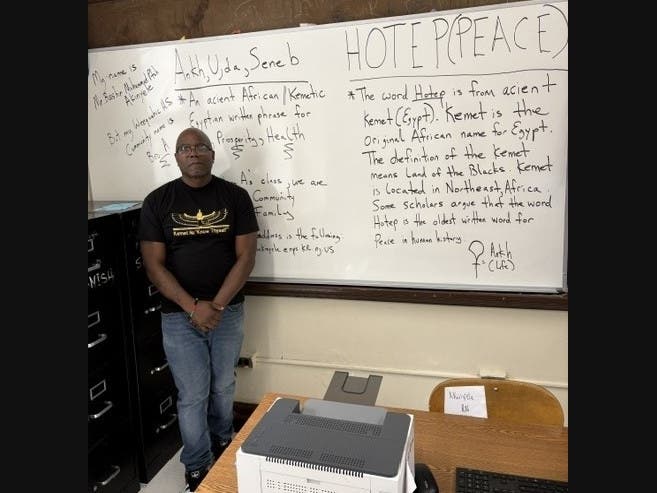 My name is
But my Weequahic HS
Community name is
Ankh, Uja, Seneb
* An acient African/Kemetic
Egyptian written phrase for
Prosperity, Health
A's class, we are
Community
Family
address is the following
HOTEP(PEACE)
* The word Hotep is from acient
Kemet (Egypt). Kemet is the
original African name for Egypt.
The definition of the Kemet
means Land of the Blacks. Kemet
is located in Northeast, Africa.
Some scholars argue that the word
Hotep is the oldest written word for
Peace in human history
= Ankh
(Life)
Kemet
NISH